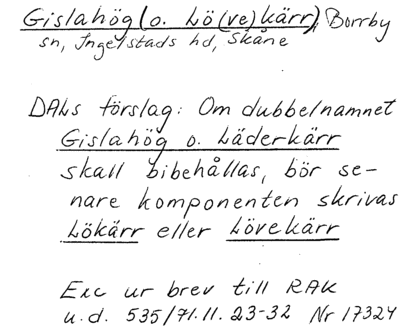 Gislahög (o. Lö(ve)kärr), Borrby
sn, Ingelstads hd, Skåne
DALs förslag: Om dubbelnamnet
Gislahög o. Läderkärr
skall bibehållas, bör se-
nare komponenten skrivas
Lökärr eller Lövekärr
Exc ur brev till RAK
u.d. 535/71.11.23-32 Nr 17324